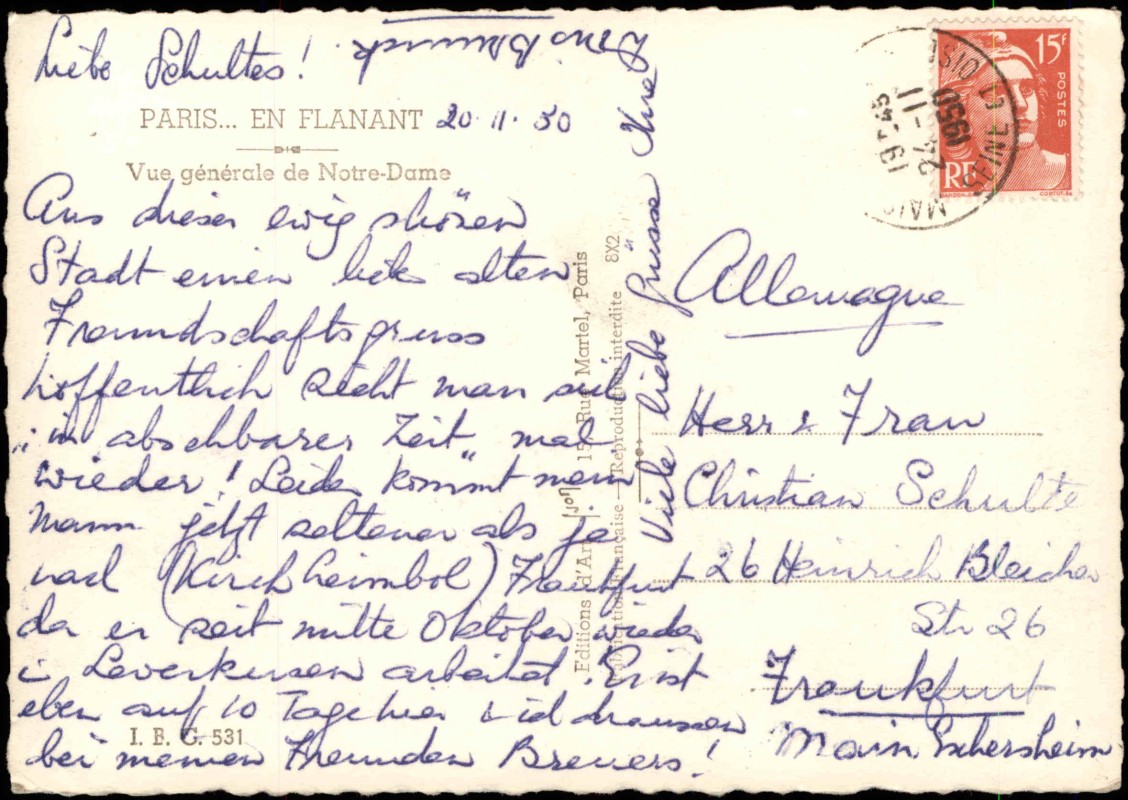 Liebe Schultes!
PARIS... EN FLANANT 20.11.50
Vue générale de Notre-Dame
Aus dieser ewig shönen
Stadt einen lieben alten
Freundschaftsgruss
hoffentlich sieht man sich
in absehbarer Zeit mal
wieder! Leider kommt mein
Mann jetzt seltener als je
nach (Kirchheimbol) Frankfurt
da er seit mitte Oktober wieder
i Leverkusen arbeitet. Er ist
eben auf 10 Tage hier & ich draussen
bei meinen Freunden Breuers!
I. B. G. 531
Viele liebe Grüsse Ihre
Editions d'Art 15, Rue Martel, Paris
Publication Française — Reproduction interdite 8X2
15F
POSTES
RF
SEINE
19 45
24-11
1950
Allemagne
Herr & Frau
Christian Schulte
26 Heinrich Bleicher
Str 26
Frankfurt
Main Eschersheim